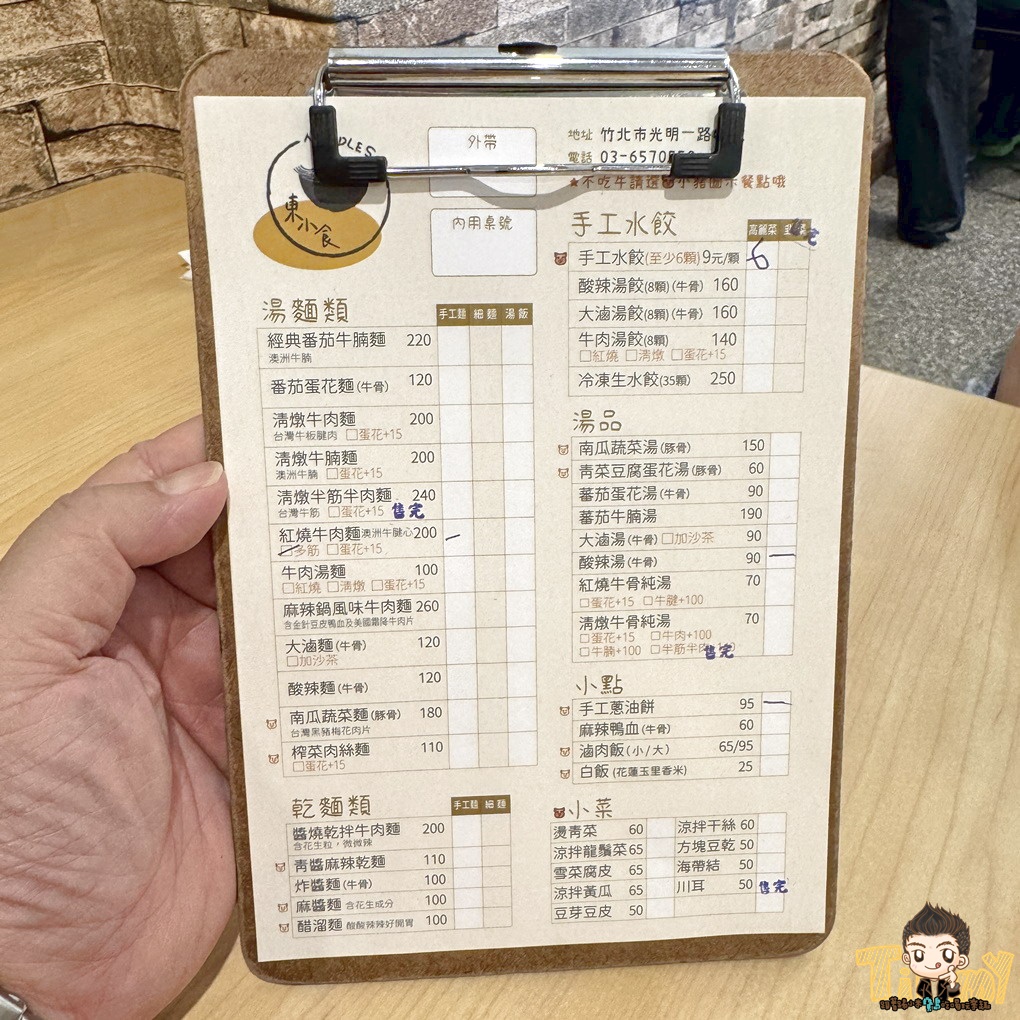 NOODLES
東小食
外帶
內用桌號
地址 竹北市光明一路
電話 03-6570
★不吃牛請選 小豬圖示餐點哦
湯麵類
手工麵 細麵 湯飯
經典番茄牛腩麵 220
澳洲牛腩
番茄蛋花麵(牛骨) 120
清燉牛肉麵 200
台灣牛板腱肉 □蛋花+15
清燉牛腩麵 200
澳洲牛腩 □蛋花+15
清燉半筋半肉麵 240
台灣牛筋 □蛋花+15 售完
紅燒牛肉麵澳洲牛腱心200
□多筋 □蛋花+15
牛肉湯麵 100
□紅燒 □清燉 □蛋花+15
麻辣鍋風味牛肉麵 260
含金針豆皮鴨血及美國霜降牛肉片
大滷麵(牛骨) 120
□加沙茶
酸辣麵(牛骨) 120
南瓜蔬菜麵(豚骨) 180
台灣黑豬梅花肉片
榨菜肉絲麵 110
□蛋花+15
乾麵類
手工麵 細麵
醬燒乾拌牛肉麵 200
含花生粒，微微辣
青醬麻辣乾麵 110
炸醬麵(牛骨) 100
麻醬麵 含花生成分 100
醋溜麵 酸酸辣辣好開胃 100
手工水餃
高麗菜
手工水餃(至少6顆)9元/顆 6
酸辣湯餃(8顆)(牛骨) 160
大滷湯餃(8顆)(牛骨) 160
牛肉湯餃(8顆) 140
□紅燒 □清燉 □蛋花+15
冷凍生水餃(35顆) 250
湯品
南瓜蔬菜湯(豚骨) 150
青菜豆腐蛋花湯(豚骨) 60
蕃茄蛋花湯(牛骨) 90
番茄牛腩湯 190
大滷湯(牛骨) □加沙茶 90
酸辣湯(牛骨) 90
紅燒牛骨純湯 70
□蛋花+15 □牛腱+100
清燉牛骨純湯 70
□蛋花+15 □牛肉+100
□牛腩+100 □半筋半肉 售完
小點
手工蔥油餅 95
麻辣鴨血(牛骨) 60
滷肉飯(小/大) 65/95
白飯(花蓮玉里香米) 25
小菜
燙青菜 60 涼拌干絲 60
涼拌龍鬚菜 65 方塊豆乾 50
雪菜腐皮 65 海帶結 50
涼拌黃瓜 65 川耳 50 售完
豆芽豆皮 50